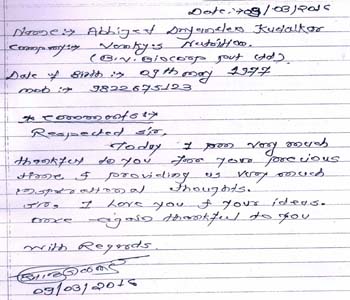 Date :- 09/03/2016
Name :- Abhijeet Dnyandeo Kudalkar
Company :- Venky's Nutrition
(B.V. Biocorp pvt ltd)
Date of Birth :- 09th may 1977
mob :- 9822675123
* comments :-
Respected sir,
Today I am very much
thankful to you for your precious
time & providing us very much
inspirational thoughts.
sir, I love you & your ideas.
once again thankful to you
with Regards.
09/03/2016